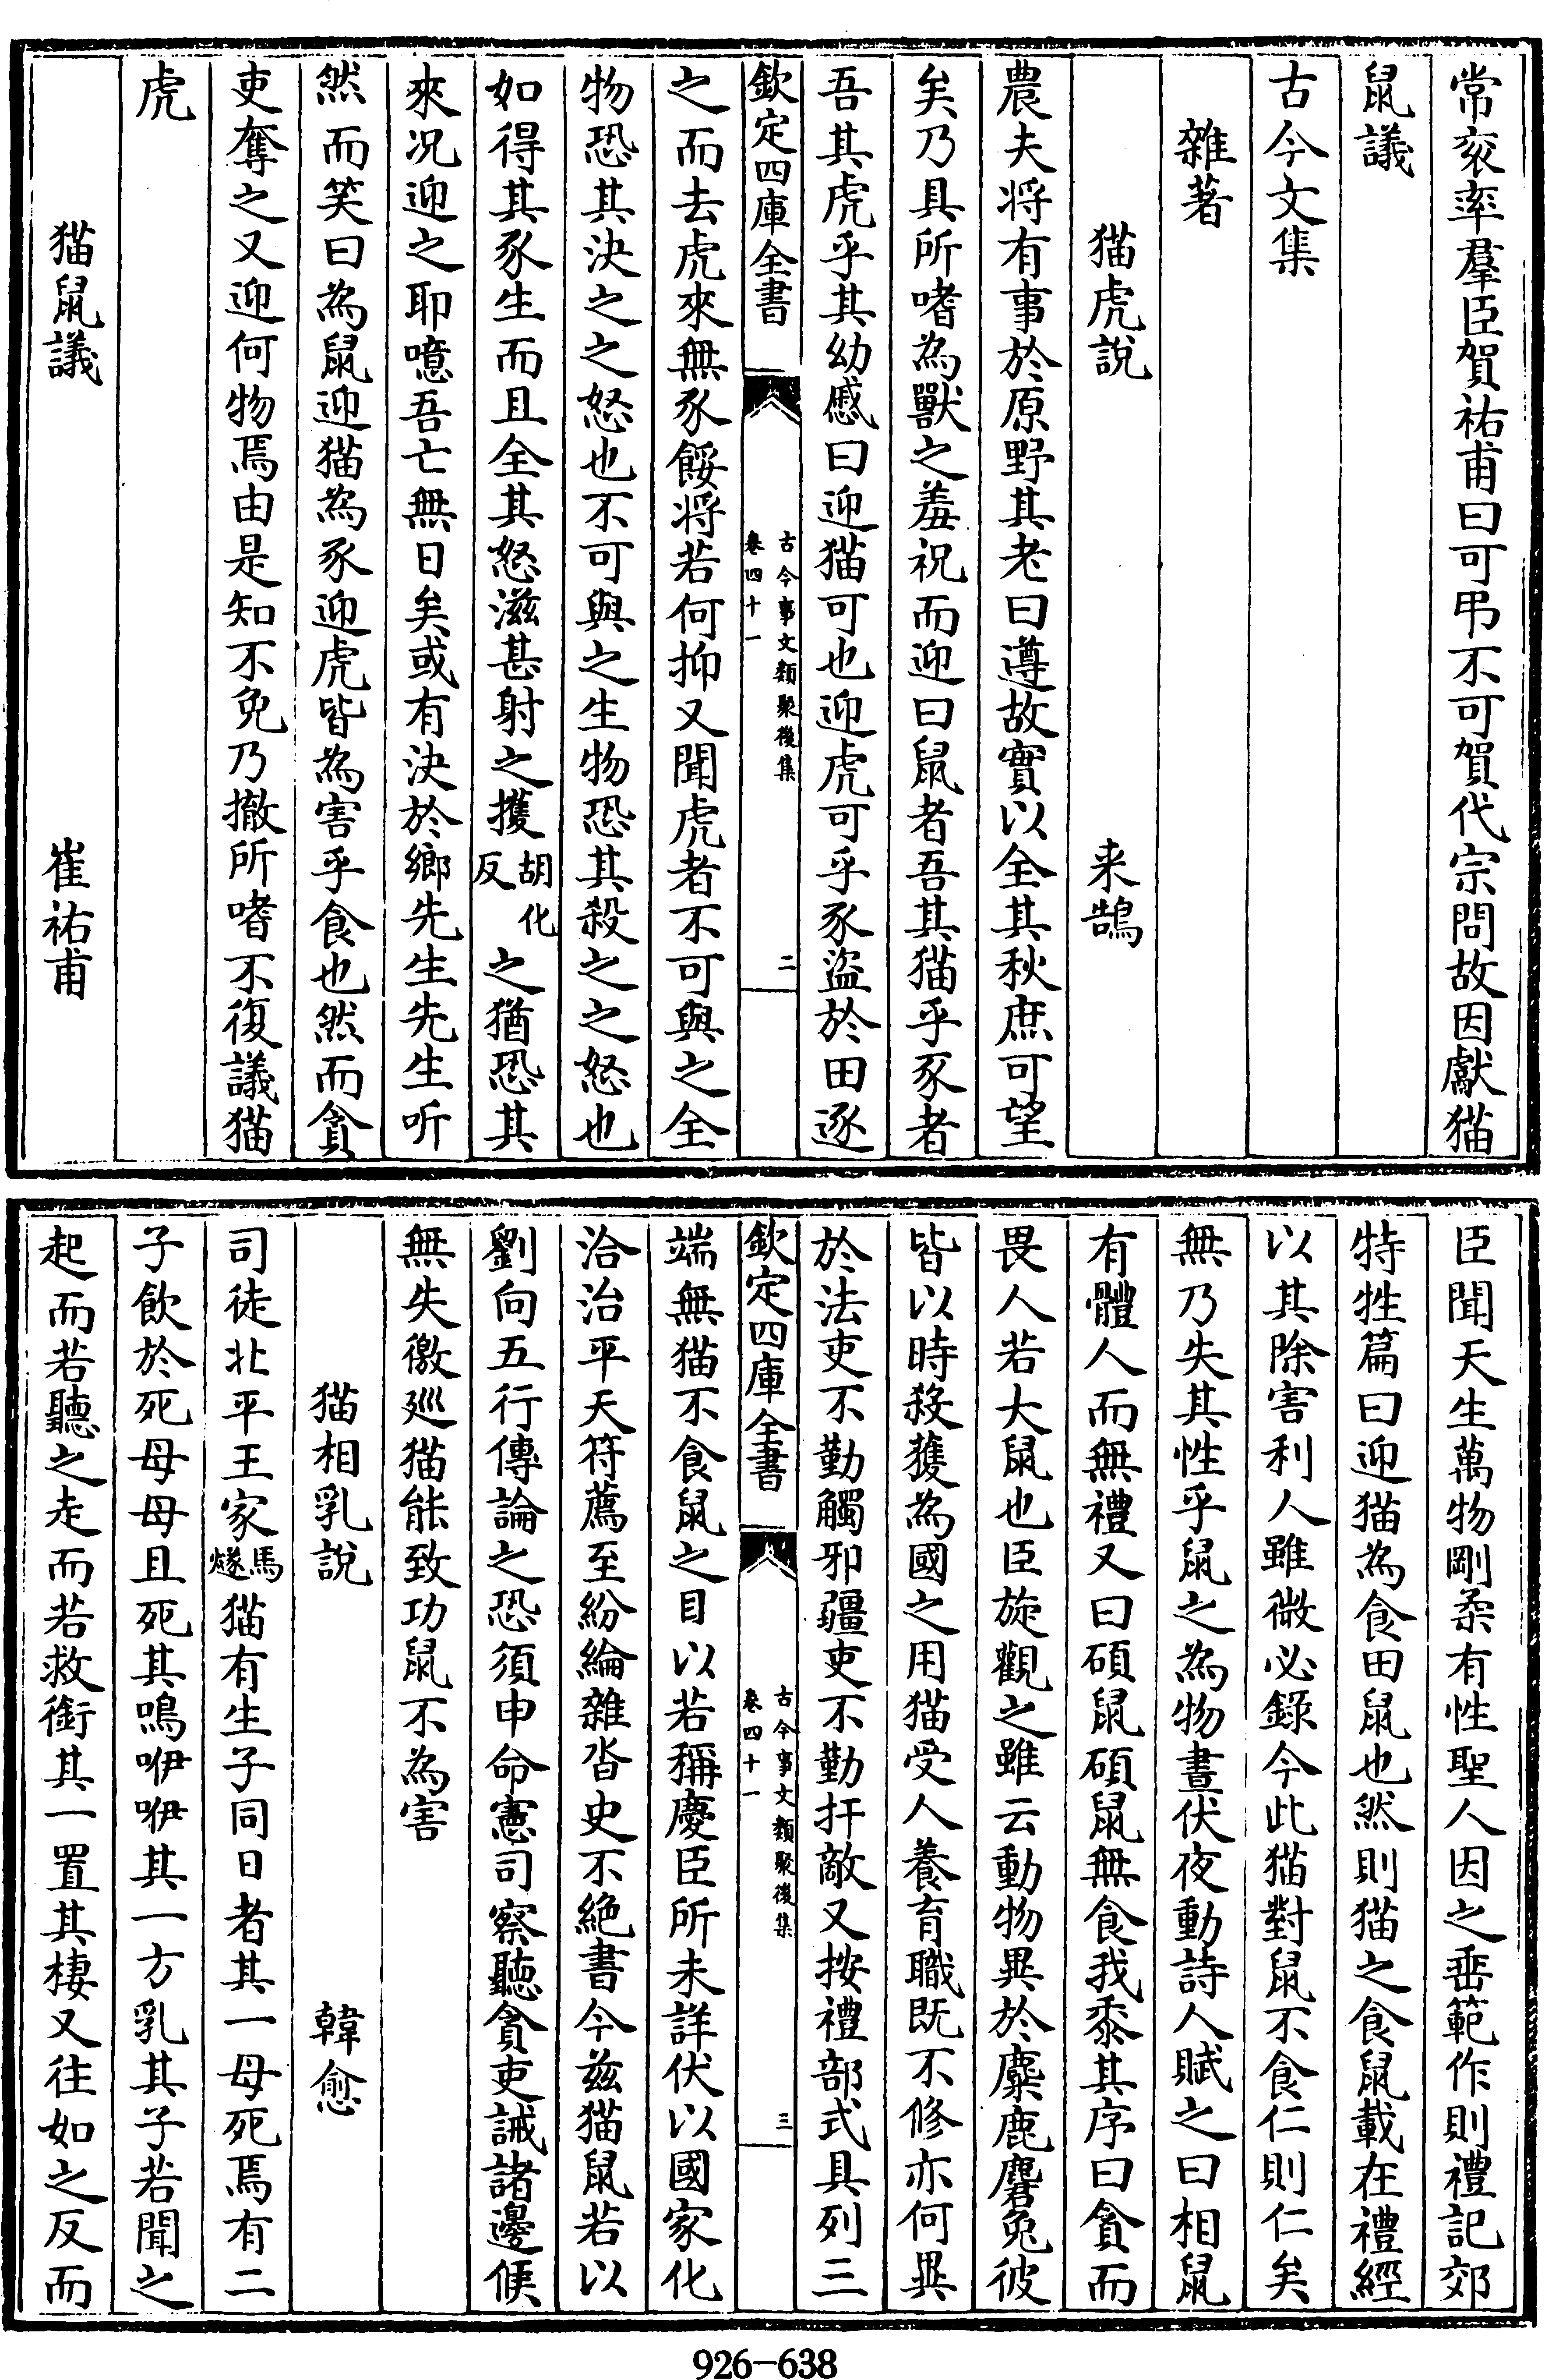 常衮率羣臣賀祐甫曰可弔不可賀代宗問故因獻猫
鼠議
古今文集
雜著
猫虎說 来鵠
農夫将有事於原野其老曰遵故實以全其秋庶可望
矣乃具所嗜為獸之羞祝而迎曰鼠者吾其猫乎豕者
吾其虎乎其幼慼曰迎猫可也迎虎可乎豕盜於田逐
欽定四庫全書 古今事文類聚後集 卷四十一 二
之而去虎來無豕餒将若何抑又聞虎者不可與之全
物恐其決之之怒也不可與之生物恐其殺之之怒也
如得其豕生而且全其怒滋甚射之擭胡化反之猶恐其
來况迎之耶噫吾亡無日矣或有決於鄉先生先生听
然而笑曰為鼠迎猫為豕迎虎皆為害乎食也然而貪
吏奪之又迎何物焉由是知不免乃撤所嗜不復議猫
虎
猫鼠議 崔祐甫
臣聞天生萬物剛柔有性聖人因之垂範作則禮記郊
特牲篇曰迎猫為食田鼠也然則猫之食鼠載在禮經
以其除害利人雖微必錄今此猫對鼠不食仁則仁矣
無乃失其性乎鼠之為物晝伏夜動詩人賦之曰相鼠
有體人而無禮又曰碩鼠碩鼠無食我黍其序曰貪而
畏人若大鼠也臣旋觀之雖云動物異於麋鹿麏兔彼
皆以時殺獲為國之用猫受人養育職既不修亦何異
於法吏不勤觸邪疆吏不勤扞敵又按禮部式具列三
欽定四庫全書 古今事文類聚後集 卷四十一 三
端無猫不食鼠之目以若稱慶臣所未詳伏以國家化
洽治平天符薦至紛綸雜沓史不絶書今兹猫鼠若以
劉向五行傳論之恐須申命憲司察聽貪吏誡諸邊候
無失徼廵猫能致功鼠不為害
猫相乳說 韓愈
司徒北平王家馬燧猫有生子同日者其一母死焉有二
子飲於死母母且死其鳴咿咿其一方乳其子若聞之
起而若聽之走而若救銜其一置其棲又往如之反而
926-638